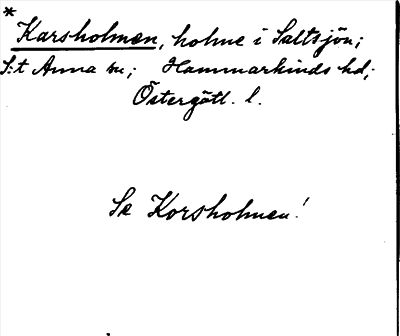 *
Karsholmen, holme i Saltsjön;
S:t Anna sn; Hammarkinds hd;
Östergötl. l.
Se Korsholmen!